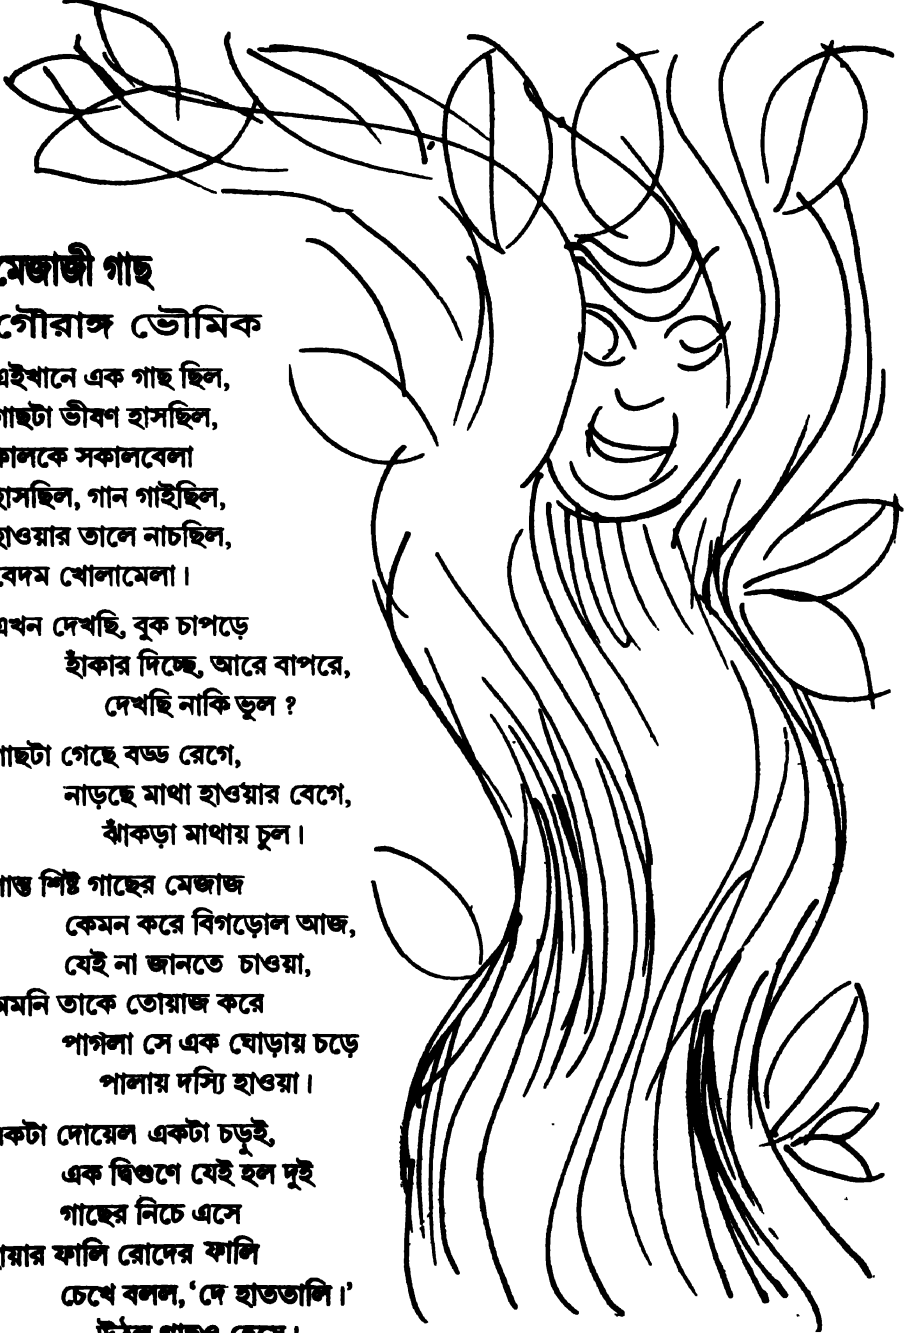 মেজাজী গাছ
গৌরাঙ্গ ভৌমিক
এইখানে এক গাছ ছিল,
গাছটা ভীষণ হাসছিল,
কালকে সকালবেলা
হাসছিল, গান গাইছিল,
হাওয়ার তালে নাচছিল,
বেদম খোলামেলা।
এখন দেখছি, বুক চাপড়ে
হাঁকার দিচ্ছে, আরে বাপরে,
দেখছি নাকি ভুল ?
গাছটা গেছে বড্ড রেগে,
নাড়ছে মাথা হাওয়ার বেগে,
ঝাঁকড়া মাথায় চুল।
শান্ত শিষ্ট গাছের মেজাজ
কেমন করে বিগড়োল আজ,
যেই না জানতে চাওয়া,
অমনি তাকে তোয়াজ করে
পাগলা সে এক ঘোড়ায় চড়ে
পালায় দস্যি হাওয়া।
একটা দোয়েল একটা চড়ুই,
এক দ্বিগুণে যেই হল দুই
গাছের নিচে এসে
ছায়ার ফালি রোদের ফালি
চেখে বলল, ‘দে হাততালি।’
উঠল গাছও হেসে।